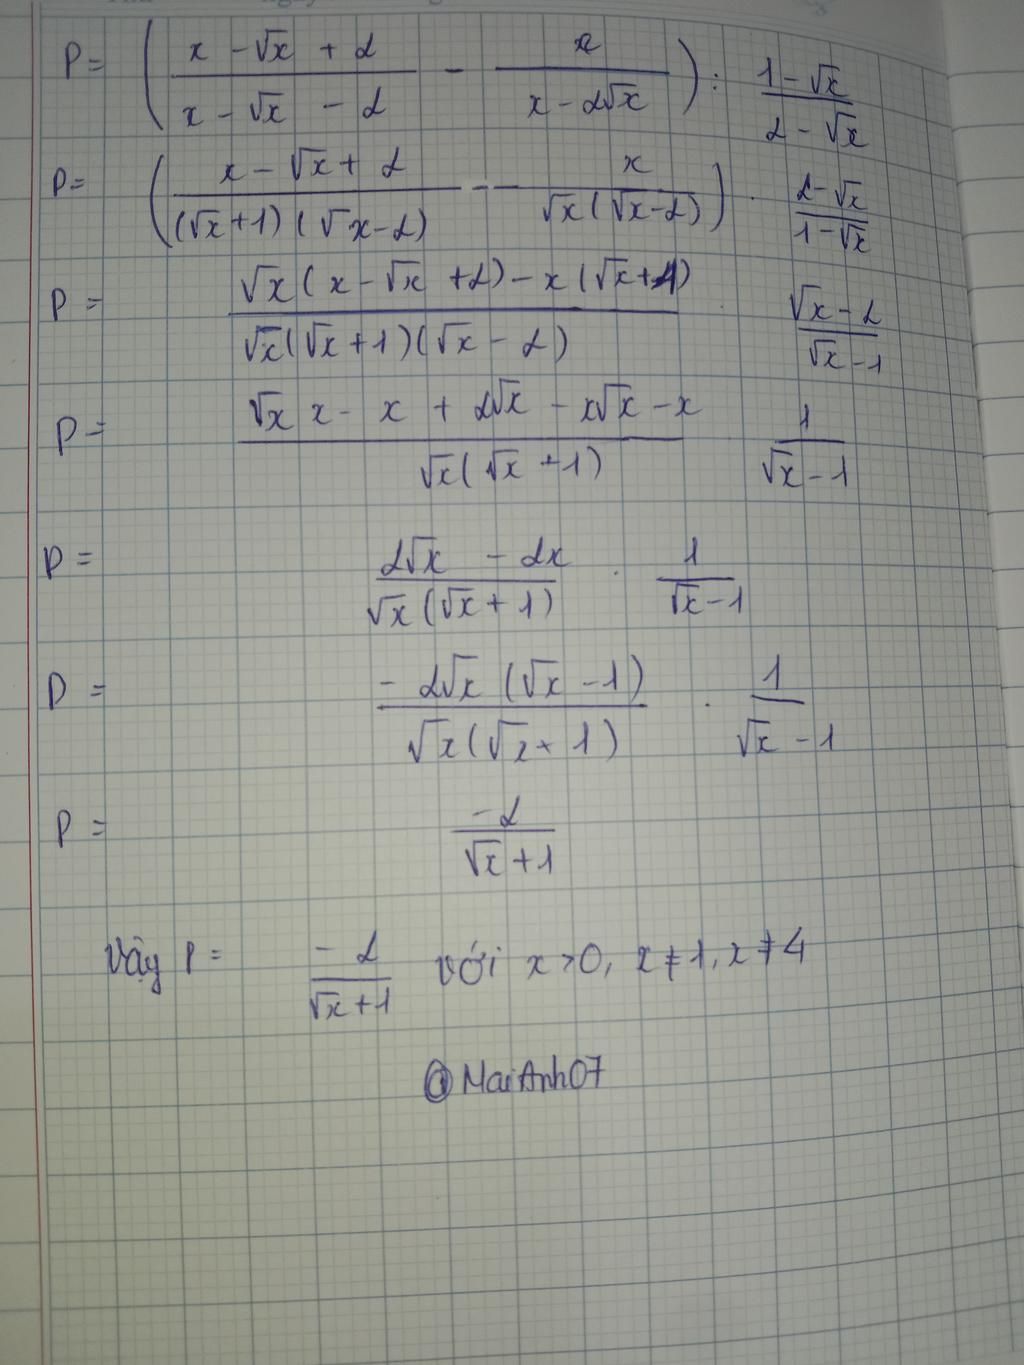 P = ( (x - √x + 2)/(x - √x - 2) - x/(x - 2√x) ) : (1 - √x)/(2 - √x)
P = ( (x - √x + 2)/((√x + 1)(√x - 2)) - x/(√x(√x - 2)) ) . (2 - √x)/(1 - √x)
P = (√x(x - √x + 2) - x(√x + 1))/(√x(√x + 1)(√x - 2)) . (√x - 2)/(√x - 1)
P = (√x x - x + 2√x - x√x - x)/(√x(√x + 1)) 1/(√x - 1)
P = (2√x - 2x)/(√x(√x + 1)) . 1/(√x - 1)
P = (-2√x(√x - 1))/(√x(√x + 1)) . 1/(√x - 1)
P = -2/(√x + 1)
Vậy P = -2/(√x + 1) với x > 0, x ≠ 1, x ≠ 4
@MaiAnh07